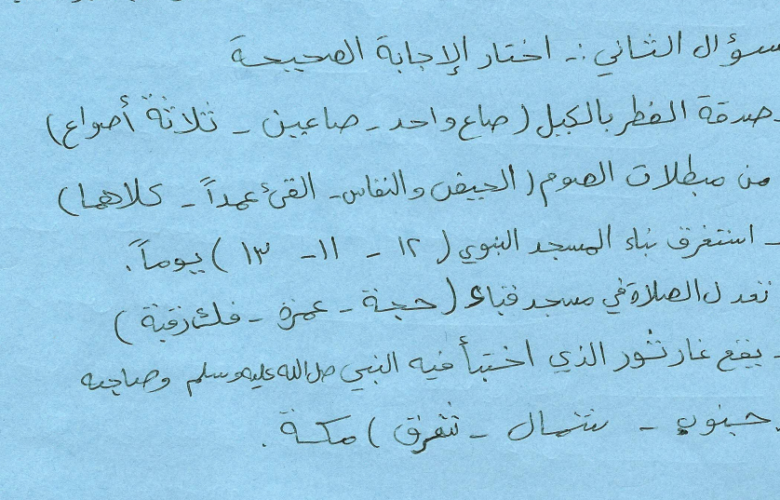 سؤال الثاني :- اختار الإجابة الصحيحة
- صدقة الفطر بالكيل (صاع واحد - صاعين - ثلاثة أصواع)
من مبطلات الصوم (الحيض والنفاس - القئ عمداً - كلاهما)
- استغرق بناء المسجد النبوي (١٢ - ١١ - ١٣) يوماً.
تعدل الصلاة في مسجد قباء (حجة - عمرة - فك رقبة)
- يقع غار ثور الذي اختبأ فيه النبي صلى الله عليه وسلم وصاحبه
جنوب - شمال - شرق) مكة.